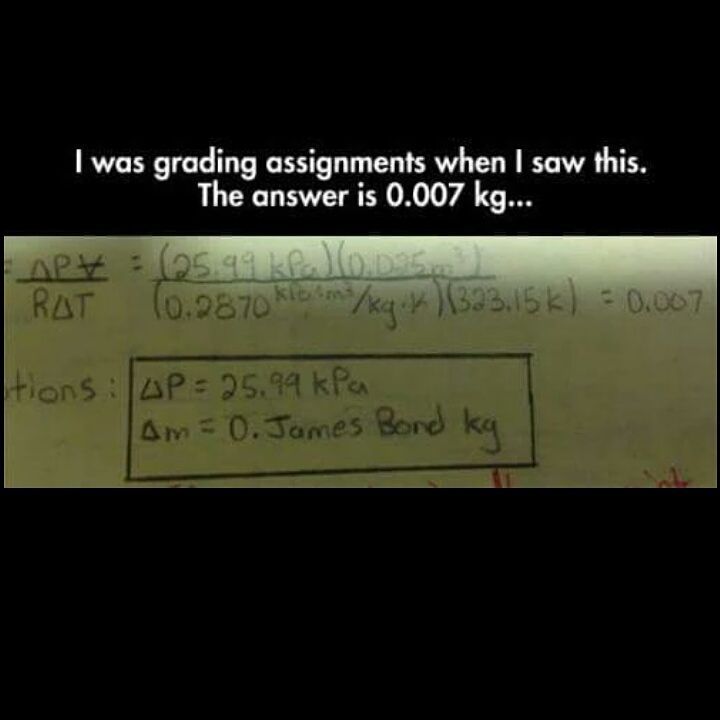 I was grading assignments when I saw this.
The answer is 0.007 kg...
= ΔPV = (25.99 kPa)(0.025m³)
RΔT (0.2870 kPa·m³/kg·K)(323.15k) = 0.007
tions: ΔP = 25.99 kPa
Δm = 0.James Bond kg